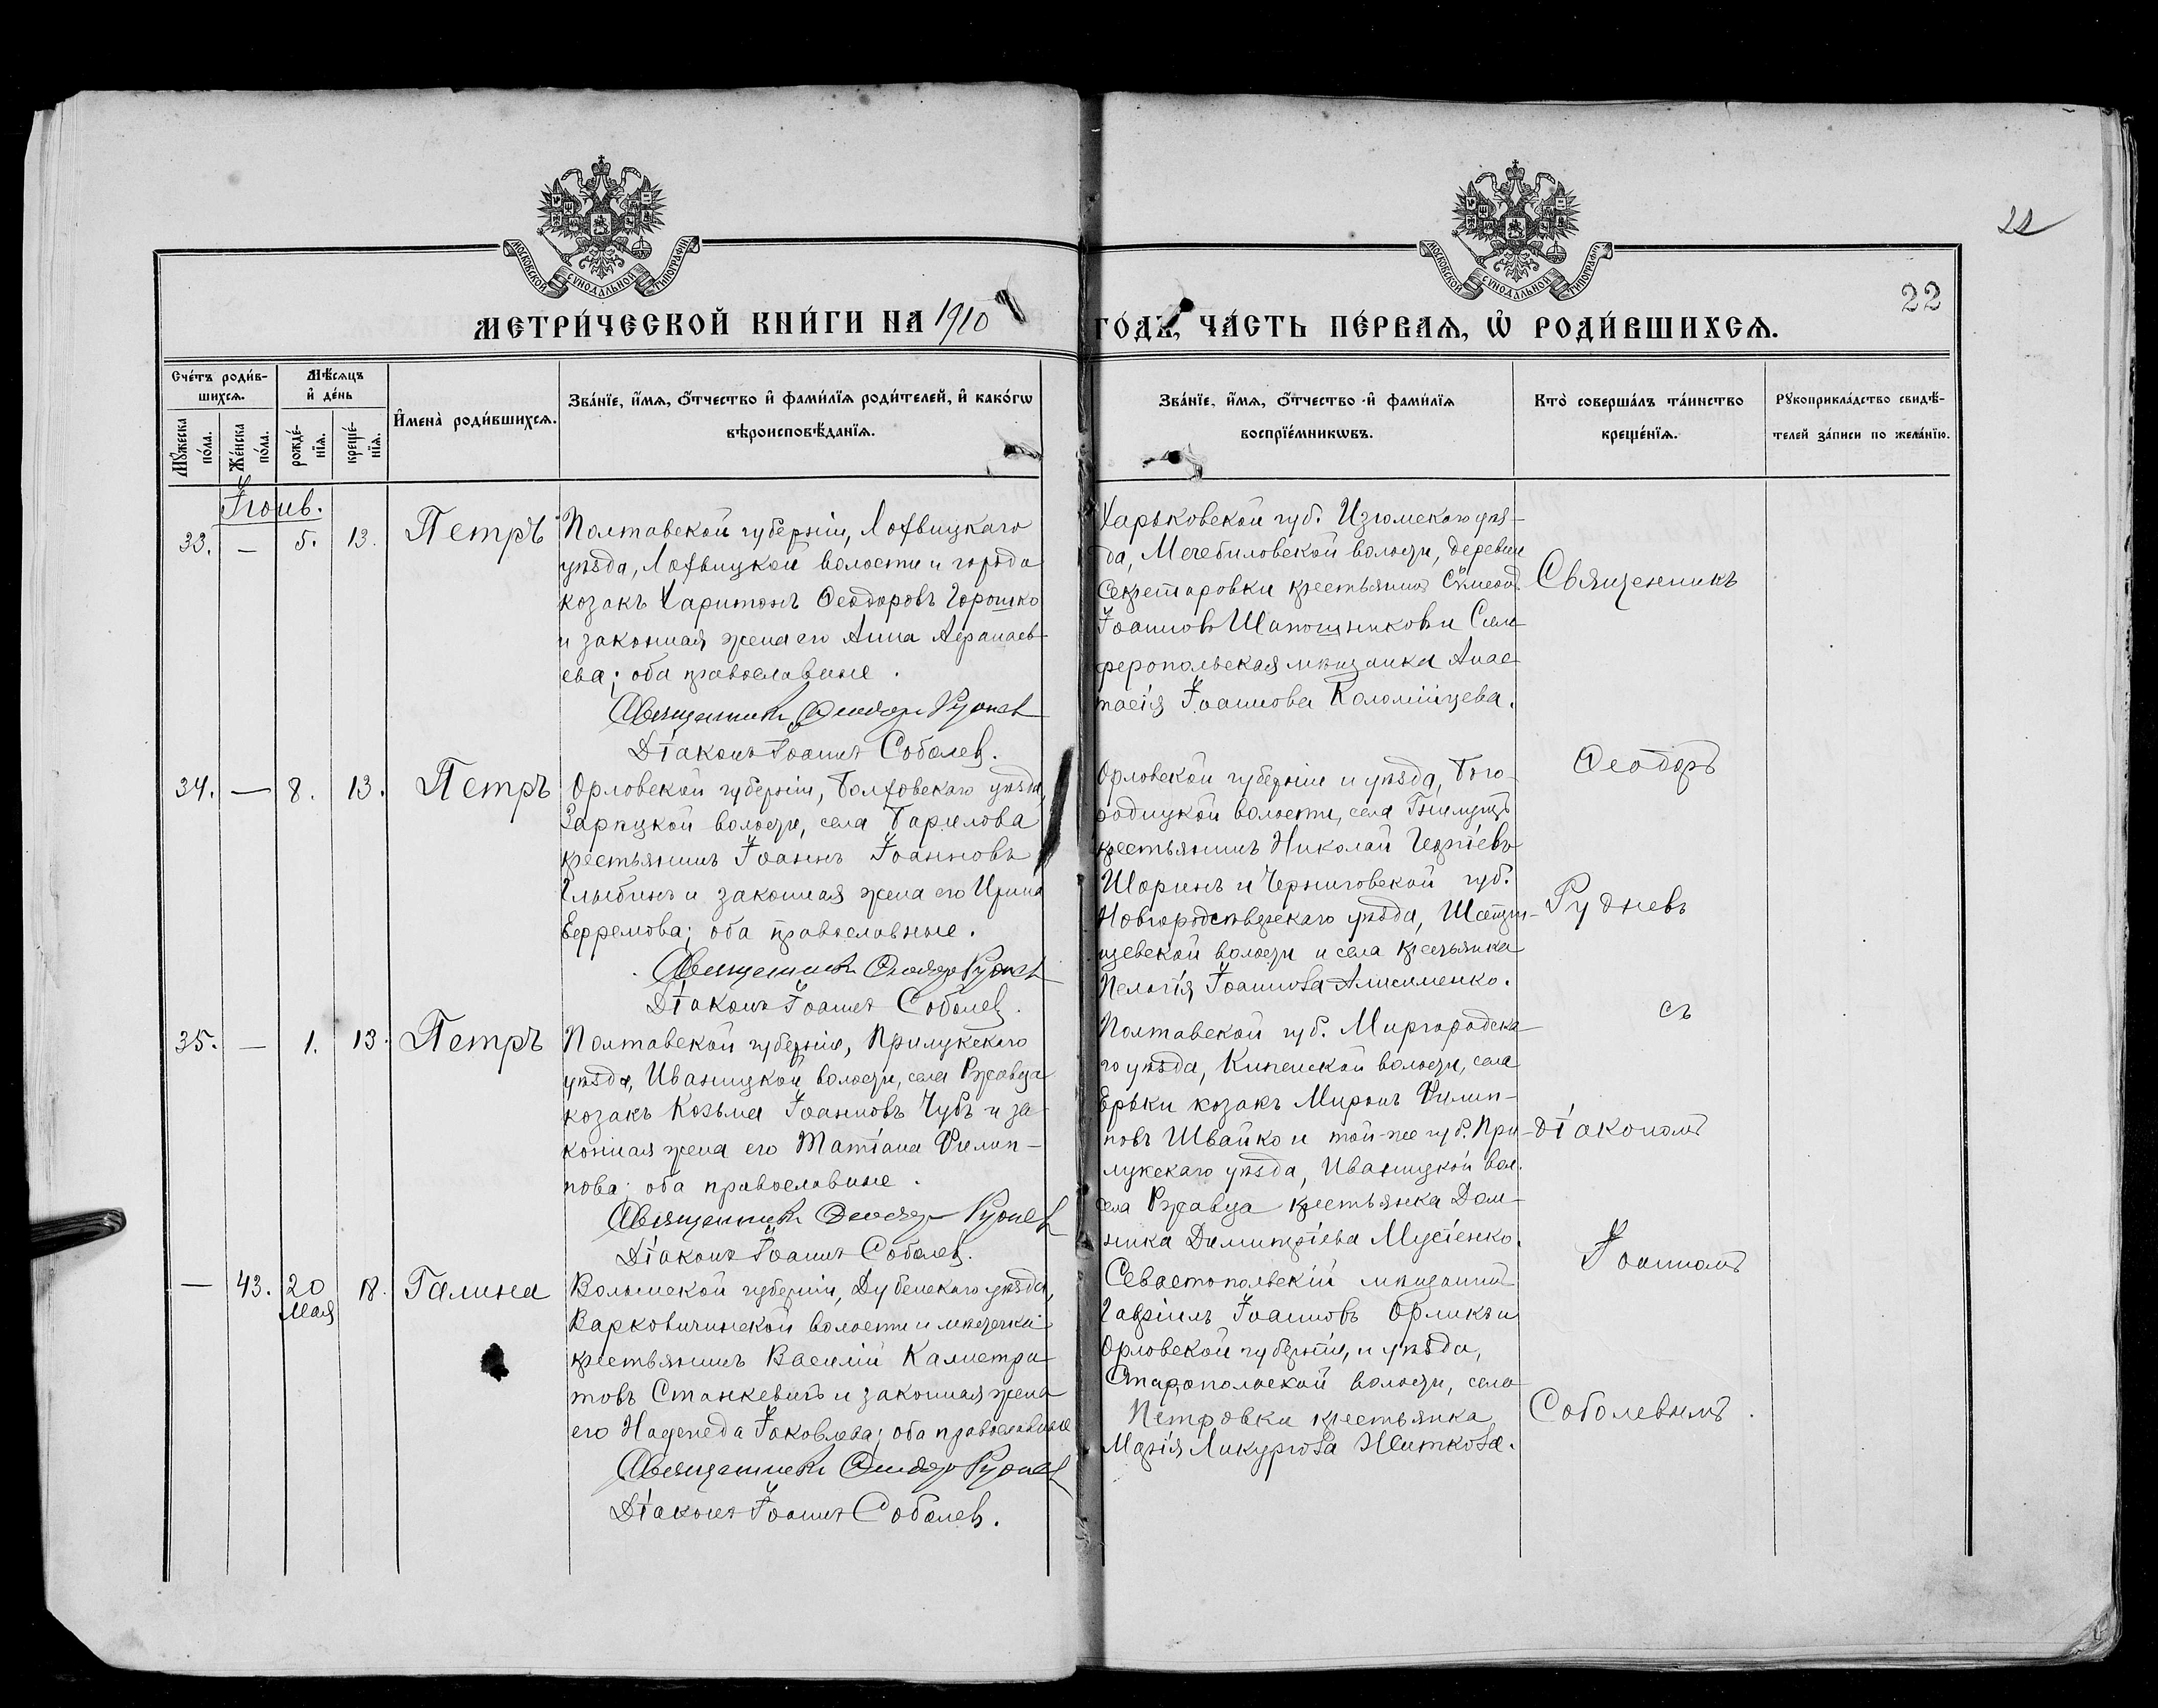 22
22
МОСКОВСКОЙ СѴНОДАЛЬНОЙ ТИПОГРАФІИ
МОСКОВСКОЙ СѴНОДАЛЬНОЙ ТИПОГРАФІИ
МЕТРИ́ЧЕСКОЙ КНИ́ГИ НА 1910 ГО́ДЪ, ЧА́СТЬ ПЕ́РВАЯ, Ѡ РОДИ́ВШИХСЯ.
Сче́тъ роди́в-
шихся.
Мꙋ́жеска по́ла.
Же́нска по́ла.
Мѣ́сяцъ
и҆ де́нь
рожде́-
нїя.
креще́-
нїя.
И҆мена̀ роди́вшихся.
Зва́нїе, и҆́мя, ѻ҆́тчество и҆ фами́лїя роди́телей, и҆ како́гѡ
вѣроисповѣ́данїя.
Зва́нїе, и҆́мя, ѻ҆́тчество и҆ фами́лїя
воспрїе́мникѡвъ.
Кто̀ соверша́лъ та́инство
креще́нїя.
Рꙋкоприкла́дство свидѣ́-
телей за́писи по жела́нїю.
Іюнь.
33. — 5. 13. Петръ
Полтавской губерніи, Лохвицкаго
уѣзда, Лохвицкой волости и города
козакъ Харитонъ Ѳеодоровъ Горошко
и законная жена его Анна Аѳанась-
ева; оба православные.
Священникъ Ѳеодоръ Рудневъ
Діаконъ Іоаннъ Соболевъ.
Харьковской губ. Изюмскаго уѣз-
да, Мечебиловской волости, деревни
Секретаровки крестьянинъ Симеонъ
Іоанновъ Шапошниковъ и Сим-
феропольская мѣщанка Анас-
тасія Іоаннова Коломійцева.
34. — 8. 13. Петръ
Орловской губерніи, Болховскаго уѣзда,
волости, села Барилова
крестьянинъ Іоаннъ Іоанновъ
Глыбинъ и законная жена его Ирина
Ефремова; оба православные.
Священникъ Ѳеодоръ Рудневъ
Діаконъ Іоаннъ Соболевъ.
Орловской губерніи и уѣзда, Бого-
родицкой волости, села
крестьянинъ Николай Георгіевъ
Шоринъ и Черниговской губ.
Новгородсѣверскаго уѣзда,
волости и села крестьянка
Пелагія Іоаннова
35. — 1. 13. Петръ
Полтавской губерніи, Прилукскаго
уѣзда, Иваницкой волости, села Ржавца
козакъ Козьма Іоанновъ Чубъ и за-
конная жена его Татіана Филип-
пова; оба православные.
Священникъ Ѳеодоръ Рудневъ
Діаконъ Іоаннъ Соболевъ.
Полтавской губ. Миргородска-
го уѣзда, волости, села
Ерьки козакъ Миронъ Филип-
повъ Швайко и той-же губ. При-
лукскаго уѣзда, Иваницкой вол.
села Ржавца крестьянка Дом-
ника Димитріева Мусіенко.
— 43. 20 Мая 18. Галина
Волынской губерніи, Дубенскаго уѣзда,
Варковичинской волости и мѣстечка
крестьянинъ Василій Калистра-
товъ Станкевичъ и законная жена
его Надежда Іаковлева; оба православные
Священникъ Ѳеодоръ Рудневъ
Діаконъ Іоаннъ Соболевъ.
Севастопольскій мѣщанинъ
Гавріилъ Іоанновъ Орликъ и
Орловской губерніи, и уѣзда,
волости, села
Петровки крестьянка
Марія Ликургова Житкова.
Священникъ
Ѳеодоръ
Рудневъ
съ
діакономъ
Іоанномъ
Соболевымъ.